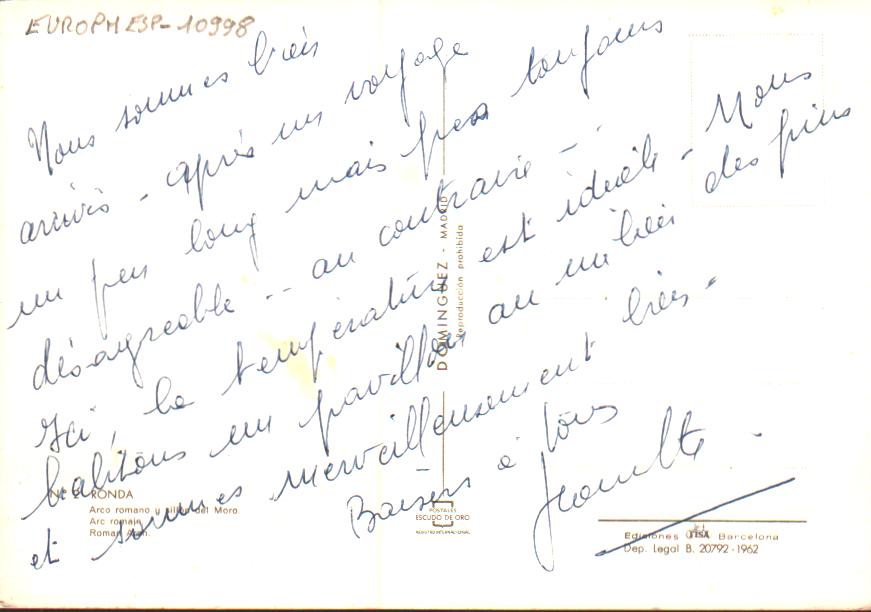 EUROPHESP-10998
Nous sommes bien
arrivés - Après un voyage
un peu long mais pas toujours
désagreable -- au contraire -
Ici, la température est idéale. Nous
habitons un pavillon au milieu des pins
et sommes merveilleusement bien.
Baisers à tous
DOMINGUEZ - MADRID
Reproducción prohibida
RONDA
Arco romano y sillón del Moro.
Arc romain
Roman Arch.
POSTALES
ESCUDO DE ORO
REGISTRO INTERNACIONAL
Ediciones FISA Barcelona
Dep. Legal B. 20792 - 1962